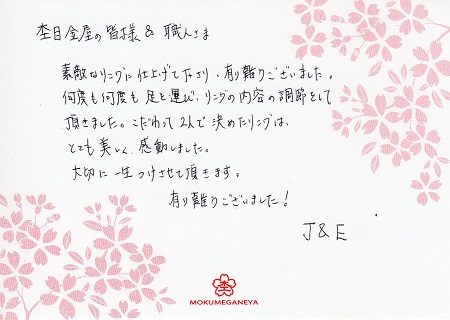 杢目金屋の皆様 & 職人さま
素敵なリングに仕上げて下さり、有り難うございました。
何度も何度も足を運び、リングの内容の調節をして
頂きました。こだわって2人で決めたリングは、
とても美しく、感動しました。
大切に一生つけさせて頂きます。
有り難うございました!
J & E
MOKUMEGANEYA